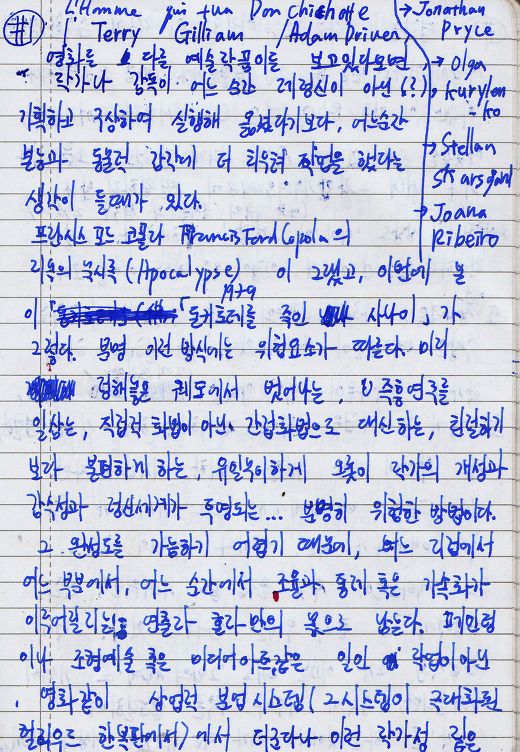 #1 L'Homme qui tua Don Chichotte → Jonathan Pryce
Terry Gilliam / Adam Driver
→ Olga Kurylenko
→ Stellan Skarsgard
→ Joana Ribeiro
영화를 다른 예술작품이든 보고있다보면,
작가나 감독이 어느 순간 제정신이 아닌(?),
기획하고 구상하여 실행해 옮겼다기보다, 어느순간
본능과 동물적 감각에 더 치우쳐 작업을 했다는
생각이 들때가 있다.
프란시스 포드 코폴라 Francis Ford Copola의
지옥의 묵시록 (Apocalypse) 1979 이 그랬고, 이번에 본
이 「돈키호테를 죽인 사나이」가
그렇다. 분명 이런 방식에는 위험요소가 따른다. 미리
정해놓은 궤도에서 벗어나는, 즉흥연주를
일삼는, 직접적 화법이 아닌 간접화법으로 대신하는, 친절하기
보다 불친하게 하는, 유일무이하게 오롯이 작가의 개성과
감수성과 정신세계가 투영되는... 분명히 위험한 방법이다.
그 완성도를 가늠하기 어렵기 때문에, 어느 지점에서
어느 부분에서, 어느 순간에서 조율과 통제 혹은 가속화가
이루어질지는 연출자 혼자만의 몫으로 남는다. 페인팅
이나 조형예술 혹은 미디어아트같은 일인 작업이 아닌
영화같이 상업적 분업시스템(그시스템이 극대화된
헐리우드 한복판에서)에서 더군다나 이런 작가성 짙은